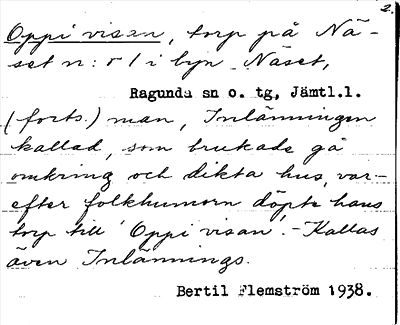 2.
Oppi visan, torp på Nä-
set n:r 1 i byn Näset,
Ragunda sn o. tg, Jämtl.l.
(forts.) man, Inlänningen
kallad, som brukade gå
omkring och dikta hus, var-
efter folkhumorn döpte hans
torp till 'Oppi visan'. - Kallas
även Inlännings.
Bertil Flemström 1938.